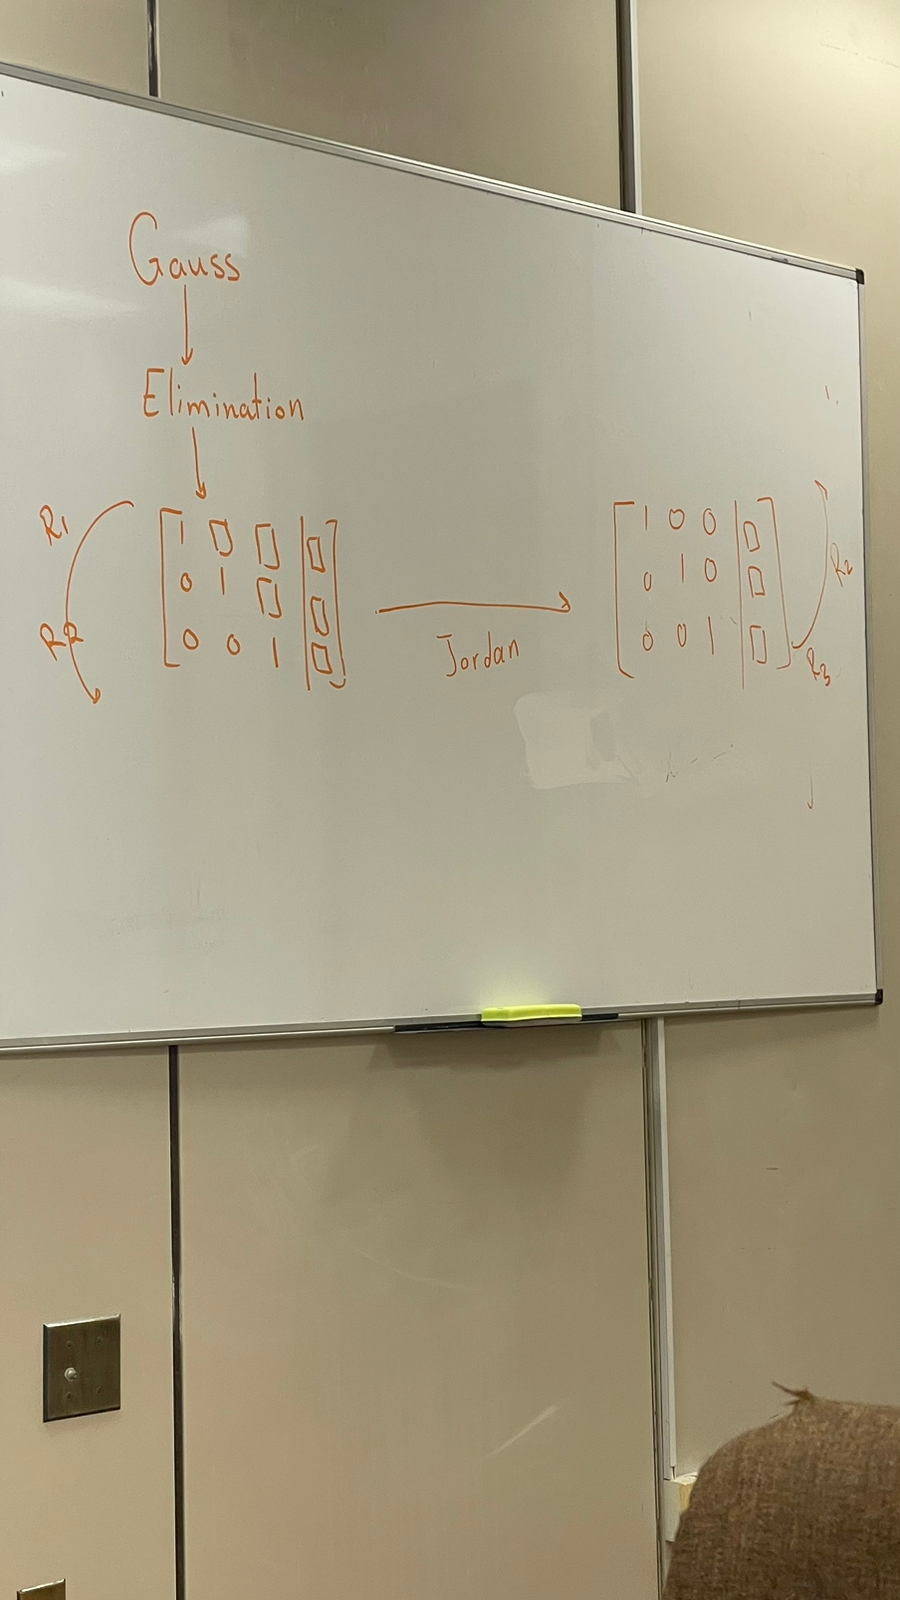 Gauss
Elimination
R1
R2
1 □ □ | □
0 1 □ | □
0 0 1 | □
Jordan
1 0 0 | □
0 1 0 | □
0 0 1 | □
R2
R3